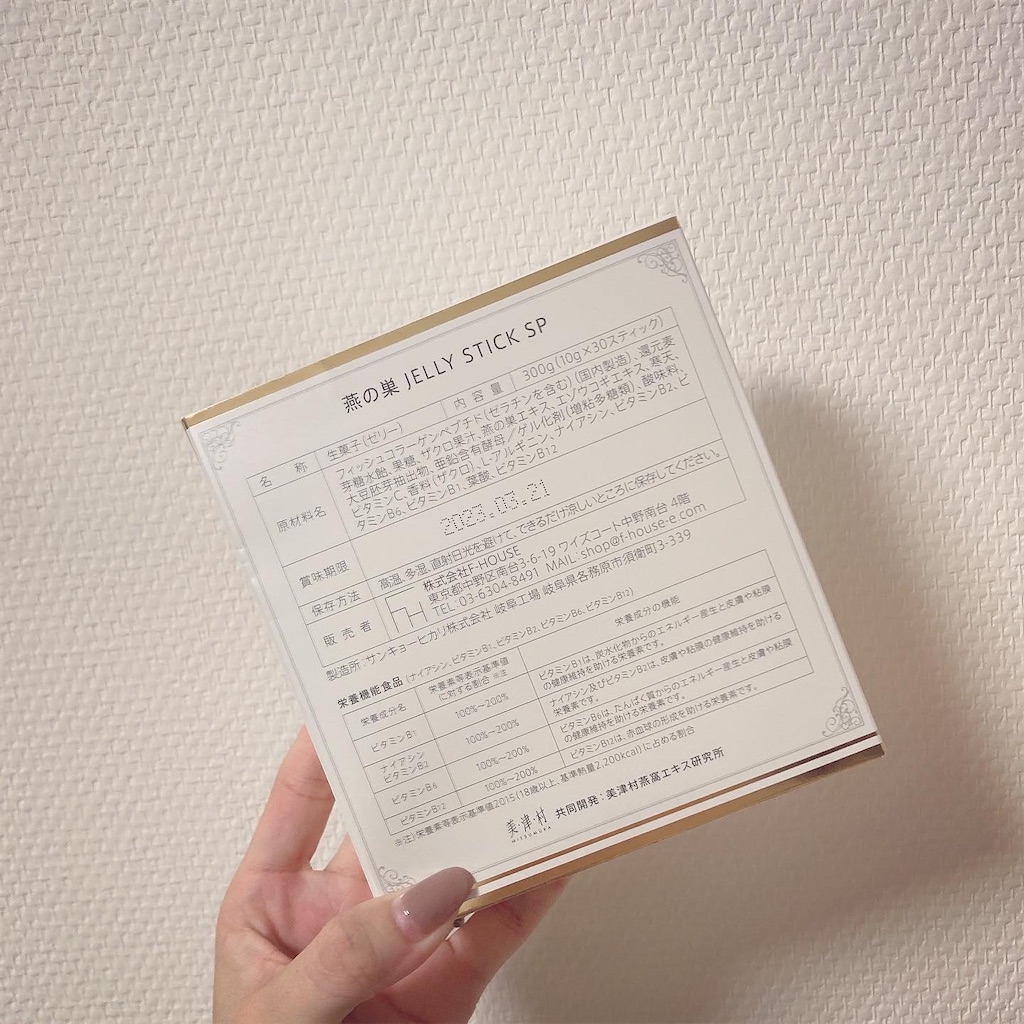 燕の巣 JELLY STICK SP
名 称 生菓子(ゼリー) 内 容 量 300g(10g×30スティック)
原材料名 フィッシュコラーゲンペプチド(ゼラチンを含む)(国内製造)、還元麦
芽糖水飴、果糖、ザクロ果汁、燕の巣エキス、エゾウコギエキス、寒天、
大豆胚芽抽出物、亜鉛含有酵母/ゲル化剤(増粘多糖類)、酸味料、
ビタミンC、香料(ザクロ)、L-アルギニン、ナイアシン、ビタミンB2、ビ
タミンB6、ビタミンB1、葉酸、ビタミンB12
賞味期限 2023.03.21
保存方法 高温、多湿、直射日光を避けて、できるだけ涼しいところに保存してください。
販 売 者 株式会社F-HOUSE
東京都中野区南台3-6-19 ワイズコート中野南台 4階
TEL:03-6304-8491 MAIL:shop@f-house-e.com
製造所:サンキョーヒカリ株式会社 岐阜工場 岐阜県各務原市須衛町3-339
栄養機能食品(ナイアシン、ビタミンB1、ビタミンB2、ビタミンB6、ビタミンB12)
栄養成分名 栄養素等表示基準値に対する割合 ※注 栄養成分の機能
ビタミンB1 100%~200% ビタミンB1は、炭水化物からのエネルギー産生と皮膚や粘膜
の健康維持を助ける栄養素です。
ナイアシン
ビタミンB2 100%~200% ナイアシン及びビタミンB2は、皮膚や粘膜の健康維持を助ける
栄養素です。
ビタミンB6 100%~200% ビタミンB6は、たんぱく質からのエネルギー産生と皮膚や粘膜
の健康維持を助ける栄養素です。
ビタミンB12 100%~200% ビタミンB12は、赤血球の形成を助ける栄養素です。
※注)栄養素等表示基準値2015(18歳以上、基準熱量2,200kcal)に占める割合
美・津・村 共同開発:美津村燕窩エキス研究所
MITSUMURA